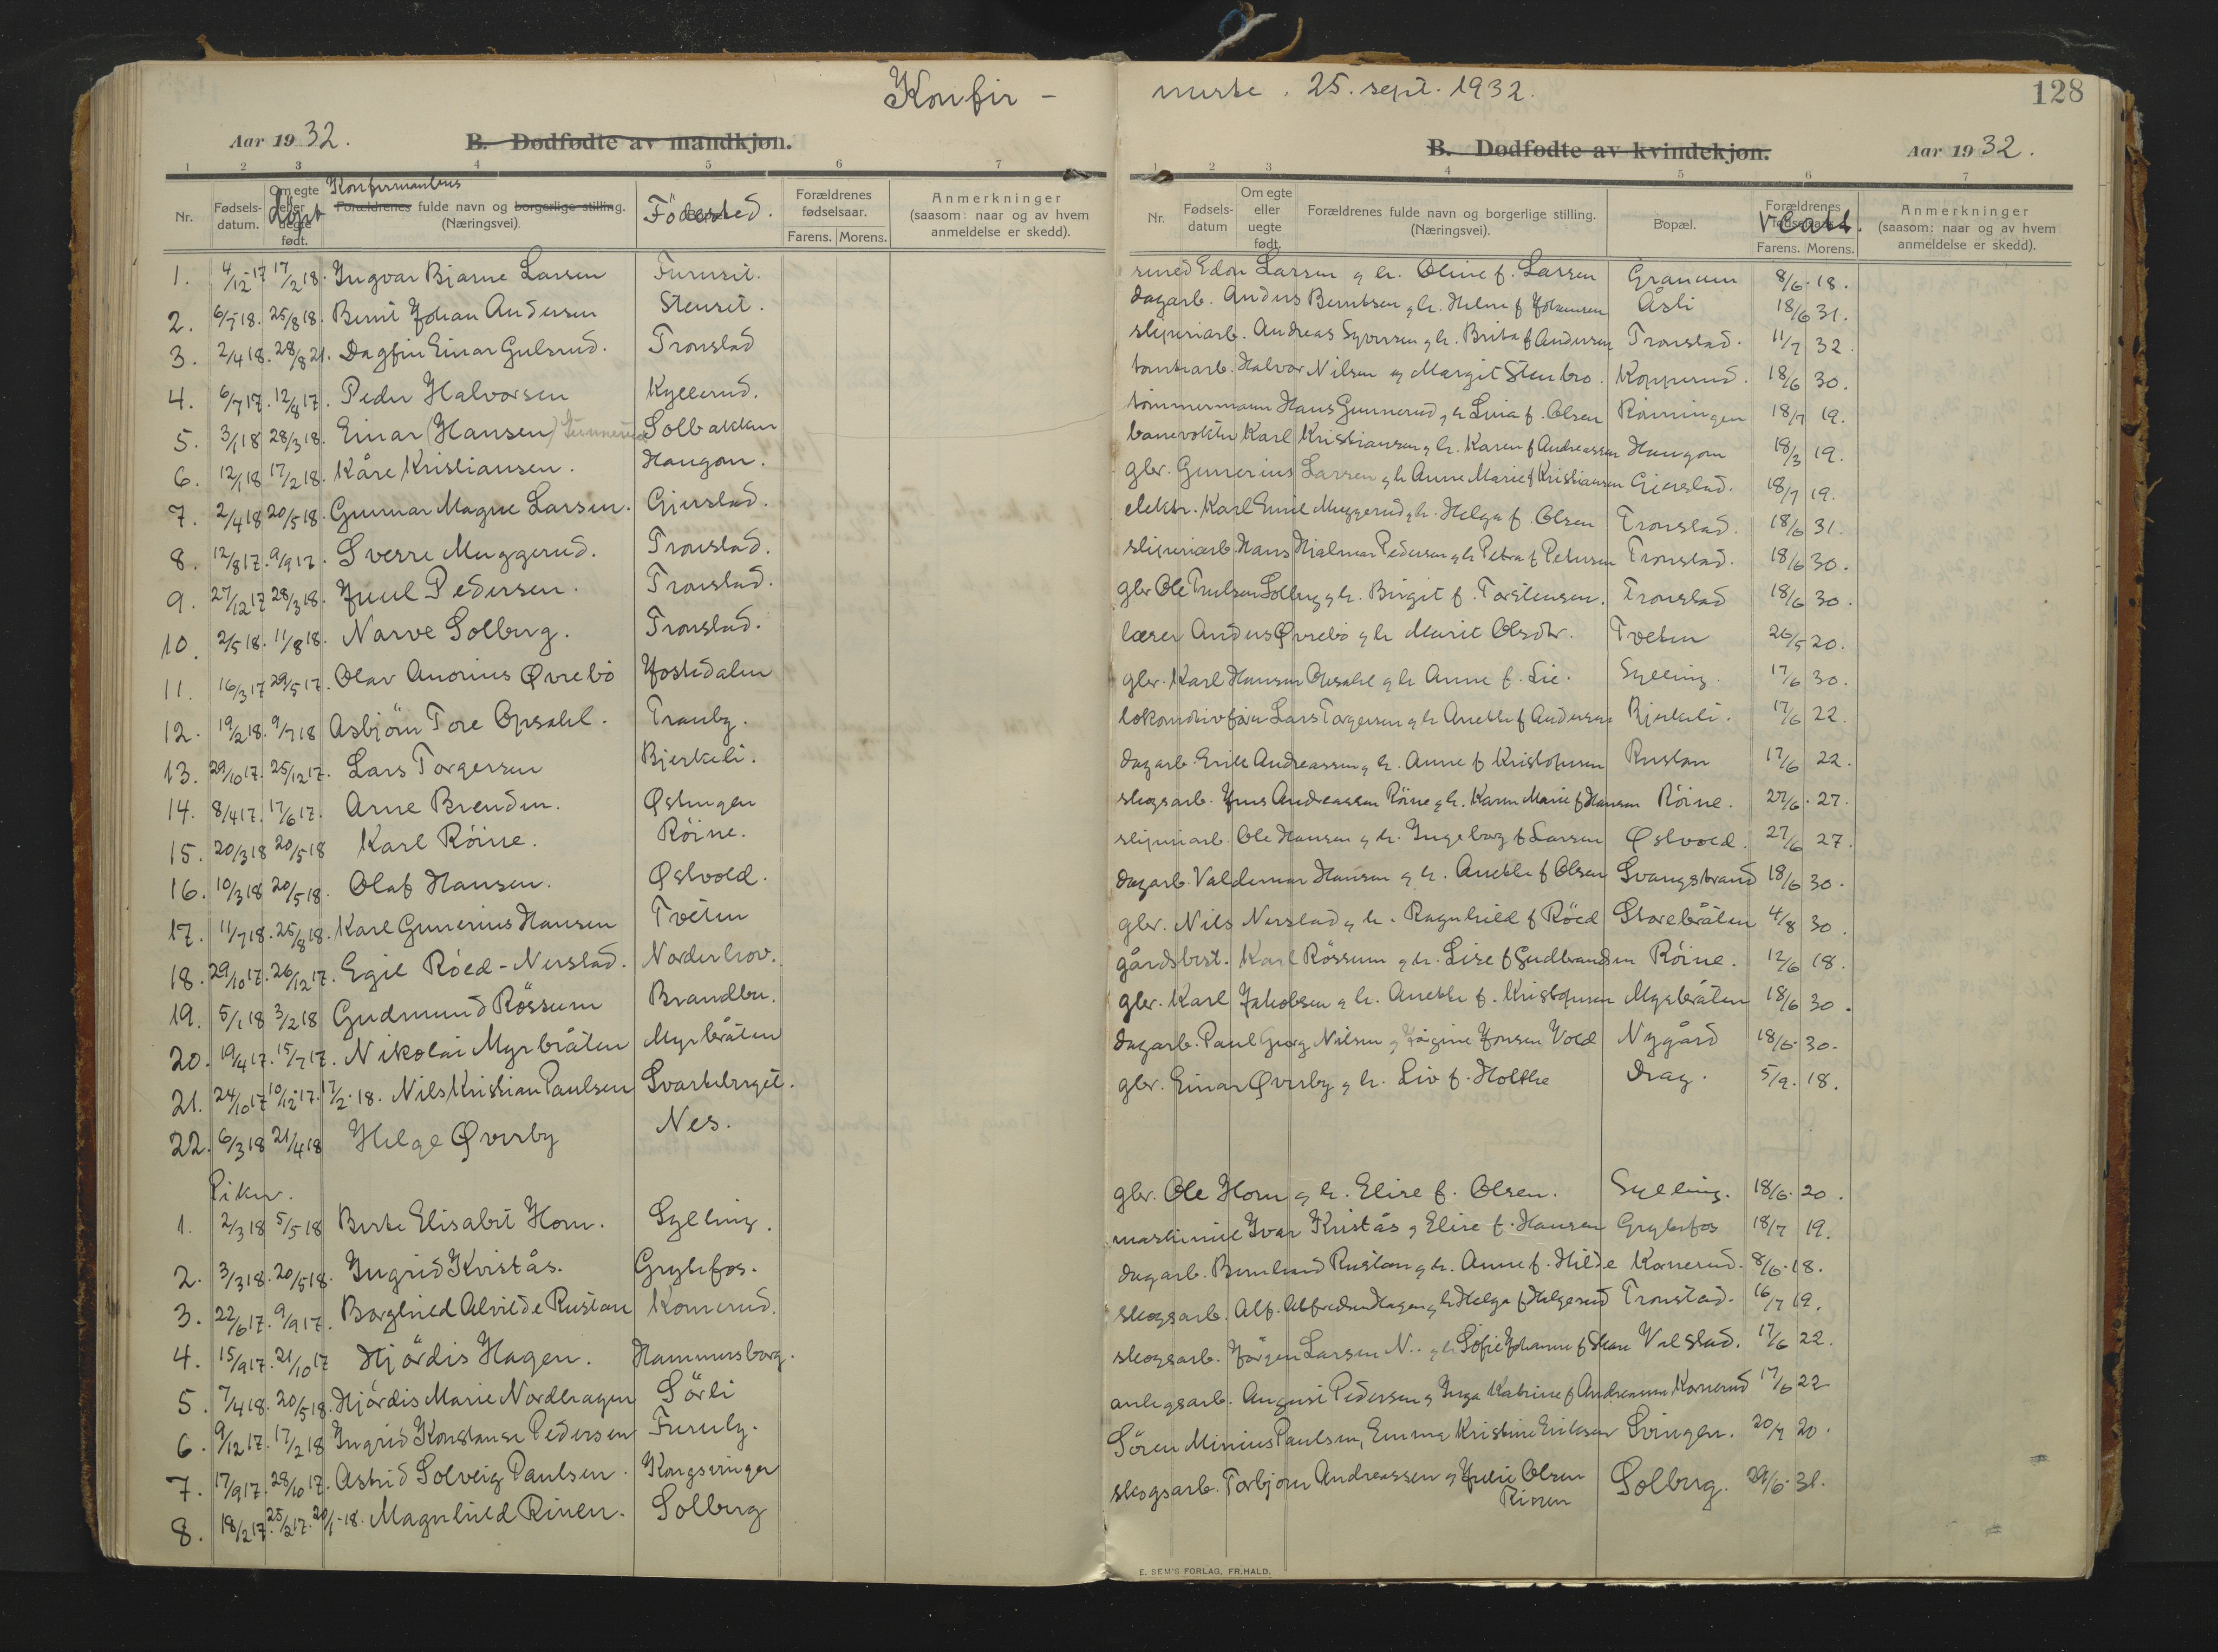 Konfir - merte. 25. sept. 1932.
128
Aar 1932.
B. Dødfødte av mandkjøn.
1 2 3 4 5 6 7
Nr.
Fødsels-datum.
Om egte eller uegte født.
Döpt
Konfirmantens
Forældrenes fulde navn og borgerlige stilling.
(Næringsvei).
Födested.
Forældrenes fødselsaar.
Farens. Morens.
Anmerkninger
(saasom: naar og av hvem anmeldelse er skedd).
1. 4/12-17 17/2 18. Ingvar Bjarne Larsen Furuset.
2. 6/7 18. 25/8 18. Bernt Johan Andersen Stenset.
3. 2/4 18. 28/8 21. Dagfin Einar Gulsrud. Tronstad
4. 6/7 17. 12/8 17. Peder Halvorsen Kyllerud.
5. 3/1 18 28/3 18. Einar (Hansen) Gunnerud Solbakken
6. 12/1 18 17/2 18. Kåre Kristiansen. Haugom.
7. 2/4 18 20/5 18. Gunnar Magne Larsen. Gjerstad.
8. 12/8 17. 9/9 17. Sverre Muggerud. Tronstad.
9. 27/12 17 28/3 18. Juul Pedersen. Tronstad.
10. 2/5 18. 11/8 18. Narve Solberg. Tronstad.
11. 16/3 17 29/5 17. Olav Anorius Øvrebö Jostedalen
12. 19/2 18. 9/7 18 Asbjörn Tore Opsahl. Tranby.
13. 29/10 17. 25/12 17. Lars Torgersen Bjerkeli.
14. 8/4 17. 17/6 17. Arne Brenden. Østengen
15. 20/3 18 20/5 18 Karl Röine. Röine.
16. 10/3 18 20/5 18. Olaf Hansen. Østvold.
17. 11/7 18. 25/8 18. Karl Gunerius Hansen Tveten
18. 29/10 17. 26/12 17. Egil Röed-Nerstad. Norderhov.
19. 5/1 18 3/2 18 Gudmund Rössum Brandbu.
20. 19/4 17. 15/7 17. Nikolai Myrbråten Myrbråten
21. 24/10 17 10/12 17. 17/2 18. Nils Kristian Paulsen Svarteberget.
22. 6/3 18 21/4 18 Helge Øverby Nes.
Piker.
1. 2/3 18 5/5 18 Berte Elisabet Horn. Sylling.
2. 3/3 18. 20/5 18. Ingrid Kvistås. Grytefos.
3. 22/6 17. 9/9 17. Borghild Alvilde Rustan Kornerud.
4. 15/9 17. 21/10 17 Hjördis Hagen. Hammersborg.
5. 7/4 18. 20/5 18. Hjördis Marie Nordhagen Sörli
6. 9/12 17. 17/2 18 Ingrid Konstanse Pedersen Furuly.
7. 17/9 17. 28/10 17. Astrid Solveig Paulsen. Kongsvinger
8. 18/2 17. 25/2 17. 20/1-18. Magnhild Rinen. Solberg
B. Dødfødte av kvindekjøn.
Aar 1932.
1 2 3 4 5 6 7
Nr.
Fødsels-datum
Om egte eller uegte født.
Forældrenes fulde navn og borgerlige stilling.
(Næringsvei).
Bopæl.
Forældrenes fødselsaar.
Vacc.
Farens. Morens.
Anmerkninger
(saasom: naar og av hvem anmeldelse er skedd).
smed Edon Larsen og h. Oline f. Larsen Granum 8/6. 18.
dagarb. Anders Berntsen og h. Helene f. Johansen Åsli 18/6 31.
sliperiarb. Andreas Syversen og h. Brita f Andersen Tronstad. 11/7 32.
tomtearb. Halvor Nilsen og Margit Stenbro. Kopperud. 18/6 30.
tömmermann Hans Gunnerud og h Lina f. Olsen Rönningen 18/7 19.
banevokter Karl Kristiansen og h. Karen f Andreassen Haugom 18/3 19.
gbr. Gunerius Larsen og h Anne Marie f Kristiansen Gjerstad. 18/7 19.
elektr. Karl Emil Muggerud og h. Helga f. Olsen Tronstad. 18/6 31.
sliperiarb. Hans Hjalmar Pedersen og h Petra f Petersen Tronstad. 18/6 30.
gbr Ole Trulsen Solberg og h. Birgit f. Torstensen. Tronstad 18/6 30.
lærer Anders Øvrebö og h Marit Olsdtr. Tveten 26/5 20.
gbr. Karl Hansen Opsahl og h Anne f. Lie. Sylling. 17/6 30.
lokomotivförer Lars Torgersen og h Anette f Andersen Bjerkeli. 17/6 22.
dagarb. Erik Andreassen og h. Anne f Kristofersen Rustan 17/6 22.
skogsarb. Jens Andreassen Röine og h. Karen Marie f Hansen Röine. 27/6. 27.
sliperiarb. Ole Hansen og h. Ingeborg f Larsen Østvold. 27/6 27.
dagarb. Valdemar Hansen og h. Anette f Olsen Svangstrand 18/6 30.
gbr. Nils Nerstad og h. Ragnhild f Röed Storebråten 4/8 30.
gårdsbest. Karl Rössum og h. Lise f Gudbrandsen Röine. 12/6 18.
gbr. Karl Jakobsen og h. Anette f. Kristofersen Myrbråten 18/6 30.
dagarb. Paul Georg Nilsen og Jörgine Jonsen Vold Nygård 18/6. 30.
gbr. Einar Øverby og h. Liv f. Holthe Drag. 5/9. 18.
gbr. Ole Horn og h. Elise f. Olsen. Sylling. 18/6. 20.
maskinist Ivar Kvistås og Elise f. Hansen Grytefos 18/7 19.
dagarb. Bernhard Rustan og h. Anne f. Hilde Kornerud. 8/6. 18.
skogsarb. Alf. Alfredsen Hagen og h Helga f Helgerud Tronstad. 16/7 19.
skogsarb. Jörgen Larsen N.. og h Sofie Johanne f Skare Velstad. 17/6 22.
anlegsarb. August Pedersen og Inga Katrine f Andreassen Kornerud 17/6 22
Sören Minius Paulsen, Emma Kristine Eriksen Svingen. 20/7 20.
skogsarb. Torbjörn Andreassen og Julie Olsen Rinen Solberg. 29/6. 31.
E. SEM'S FORLAG, FR.HALD.